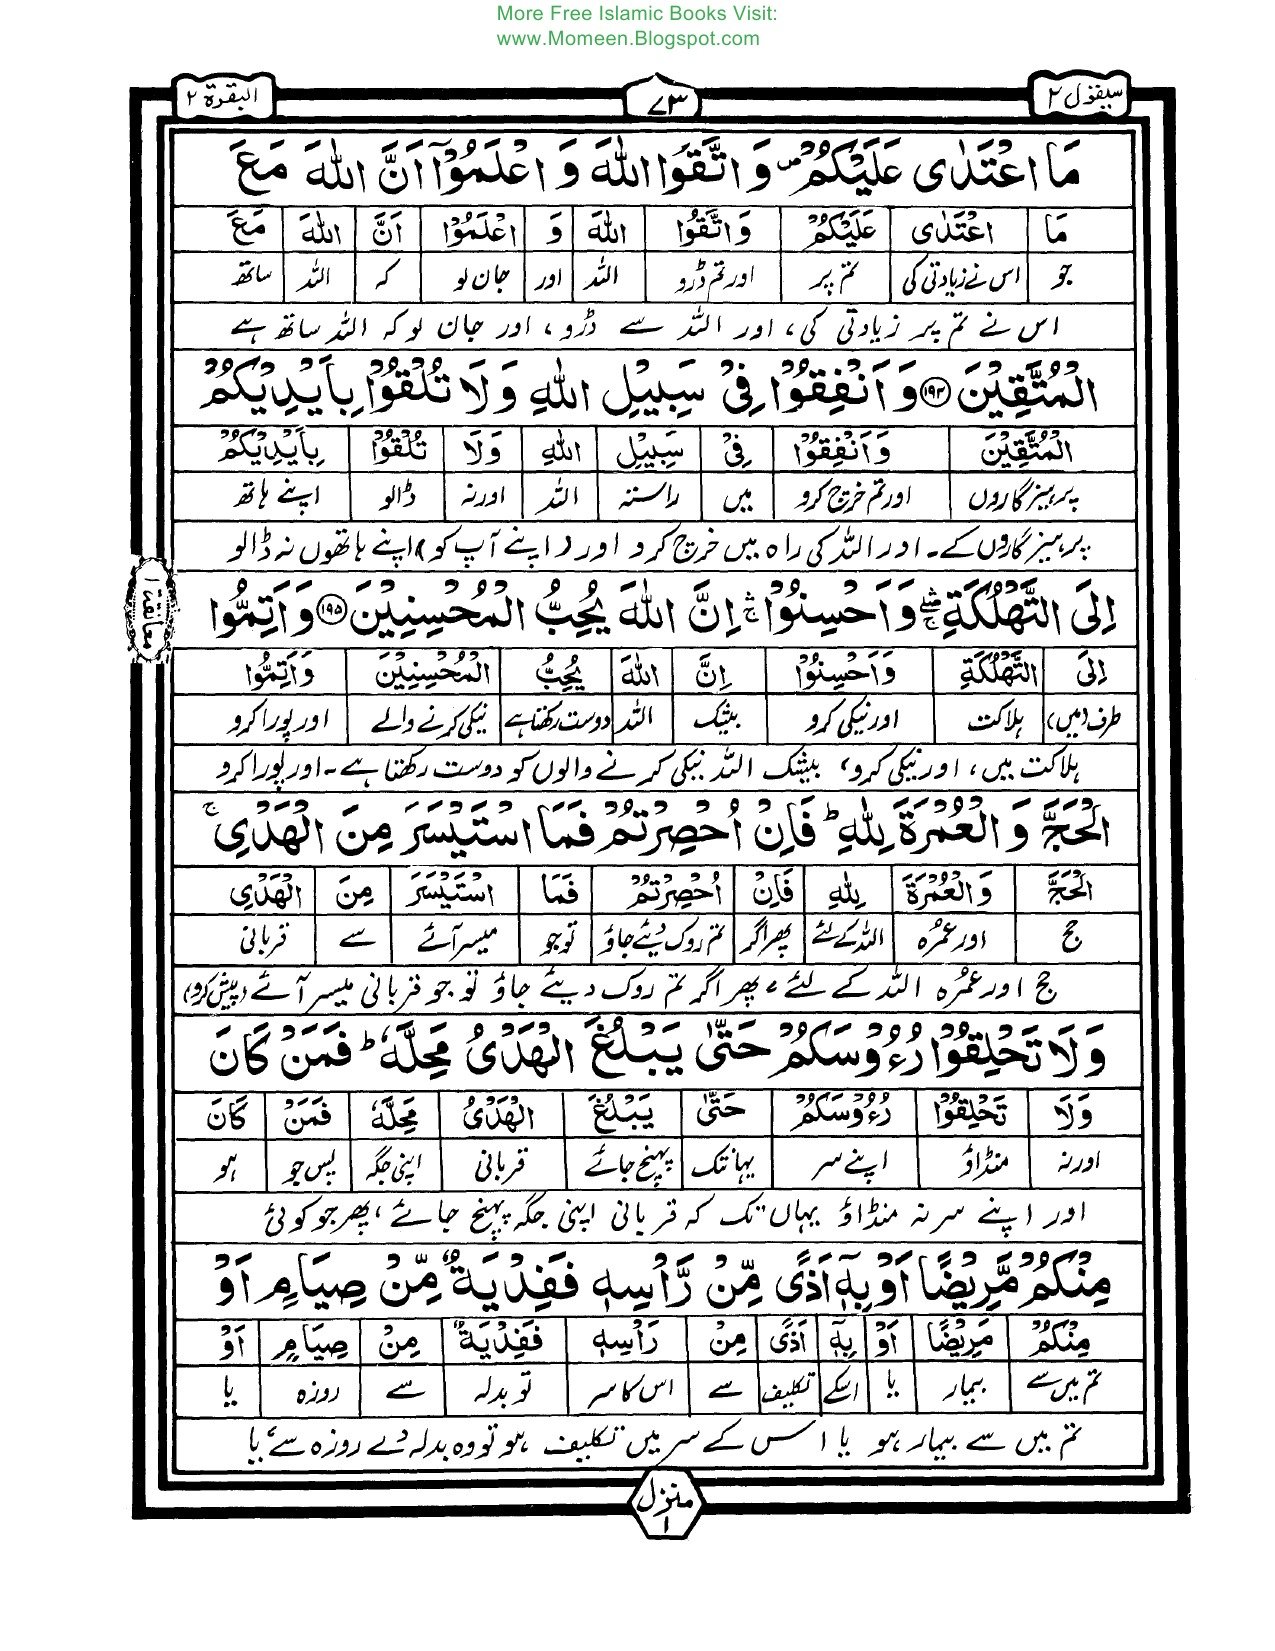 More Free Islamic Books Visit:
www.Momeen.Blogspot.com
سیقول ۲ ۷۳ البقرة ۲
مَا اعْتَدٰى عَلَيْكُمْ ۪ وَ اتَّقُوا اللّٰهَ وَ اعْلَمُوْٓا اَنَّ اللّٰهَ مَعَ
مَا اعْتَدٰى عَلَيْكُمْ وَ اتَّقُوا اللّٰهَ وَ اعْلَمُوْٓا اَنَّ اللّٰهَ مَعَ
جو اس نے زیادتی کی تم پر اور تم ڈرو اللہ اور جان لو کہ اللہ ساتھ
اس نے تم پر زیادتی کی، اور اللہ سے ڈرو، اور جان لو کہ اللہ ساتھ ہے
الْمُتَّقِيْنَ ۝۱۹۴ وَ اَنْفِقُوْا فِيْ سَبِيْلِ اللّٰهِ وَ لَا تُلْقُوْا بِاَيْدِيْكُمْ
الْمُتَّقِيْنَ وَ اَنْفِقُوْا فِيْ سَبِيْلِ اللّٰهِ وَلَا تُلْقُوْا بِاَيْدِيْكُمْ
پرہیزگاروں اور تم خرچ کرو میں راستہ اللہ اور نہ ڈالو اپنے ہاتھ
پرہیزگاروں کے۔ اور اللہ کی راہ میں خرچ کرو اور (اپنے آپ کو) اپنے ہاتھوں نہ ڈالو
معانقة ۱
اِلَى التَّهْلُكَةِ ۛۚ وَ اَحْسِنُوْا ۛۚ اِنَّ اللّٰهَ يُحِبُّ الْمُحْسِنِيْنَ ۝۱۹۵ وَ اَتِمُّوا
اِلَى التَّهْلُكَةِ وَ اَحْسِنُوْا اِنَّ اللّٰهَ يُحِبُّ الْمُحْسِنِيْنَ وَ اَتِمُّوا
طرف (میں) ہلاکت اور نیکی کرو بیشک اللہ دوست رکھتا ہے نیکی کرنے والے اور پورا کرو
ہلاکت میں، اور نیکی کرو، بیشک اللہ نیکی کرنے والوں کو دوست رکھتا ہے۔ اور پورا کرو
الْحَجَّ وَ الْعُمْرَةَ لِلّٰهِ ؕ فَاِنْ اُحْصِرْتُمْ فَمَا اسْتَيْسَرَ مِنَ الْهَدْيِ ۚ
الْحَجَّ وَ الْعُمْرَةَ لِلّٰهِ فَاِنْ اُحْصِرْتُمْ فَمَا اسْتَيْسَرَ مِنَ الْهَدْيِ
حج اور عمرہ اللہ کے لئے پھر اگر تم روک دیئے جاؤ تو جو میسر آئے سے قربانی
حج اور عمرہ اللہ کے لئے، پھر اگر تم روک دیئے جاؤ تو جو قربانی میسر آئے (پیش کرو)
وَ لَا تَحْلِقُوْا رُءُوْسَكُمْ حَتّٰى يَبْلُغَ الْهَدْيُ مَحِلَّهٗ ؕ فَمَنْ كَانَ
وَلَا تَحْلِقُوْا رُءُوْسَكُمْ حَتّٰى يَبْلُغَ الْهَدْيُ مَحِلَّهٗ فَمَنْ كَانَ
اور نہ منڈاؤ اپنے سر یہانتک پہنچ جائے قربانی اپنی جگہ پس جو ہو
اور اپنے سر نہ منڈاؤ یہاں تک کہ قربانی اپنی جگہ پہنچ جائے، پھر جو کوئی
مِنْكُمْ مَّرِيْضًا اَوْ بِهٖٓ اَذًى مِّنْ رَّاْسِهٖ فَفِدْيَةٌ مِّنْ صِيَامٍ اَوْ
مِنْكُمْ مَرِيْضًا اَوْ بِهٖٓ اَذًى مِنْ رَاْسِهٖ فَفِدْيَةٌ مِنْ صِيَامٍ اَوْ
تم میں سے بیمار یا اسکے تکلیف سے اس کا سر تو بدلہ سے روزہ یا
تم میں سے بیمار ہو یا اس کے سر میں تکلیف ہو تو وہ بدلہ دے روزہ سے، یا
منزل ۱